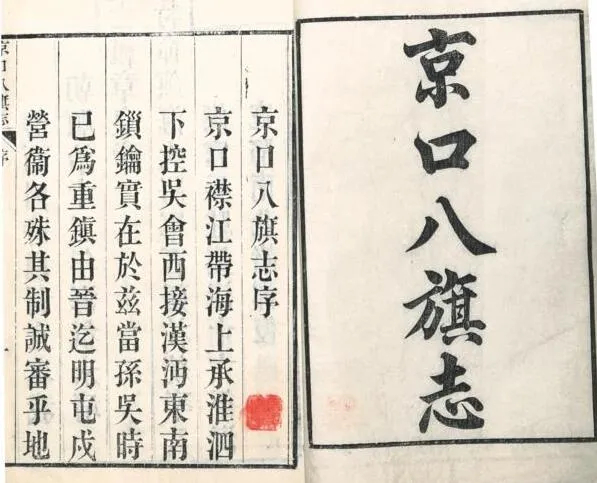 京口八旗志
京口八旗志序
京口襟江帶海上承淮泗
下控吳會西接漢沔東南
鎖鑰實在於兹當孫吳時
已爲重鎭由晉迄明屯戍
營衞各殊其制誠審乎地
京口八旗志
序
一